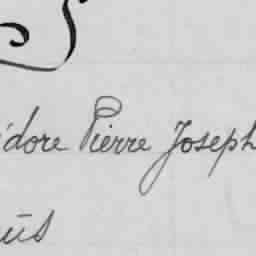 idore Pierre Joseph